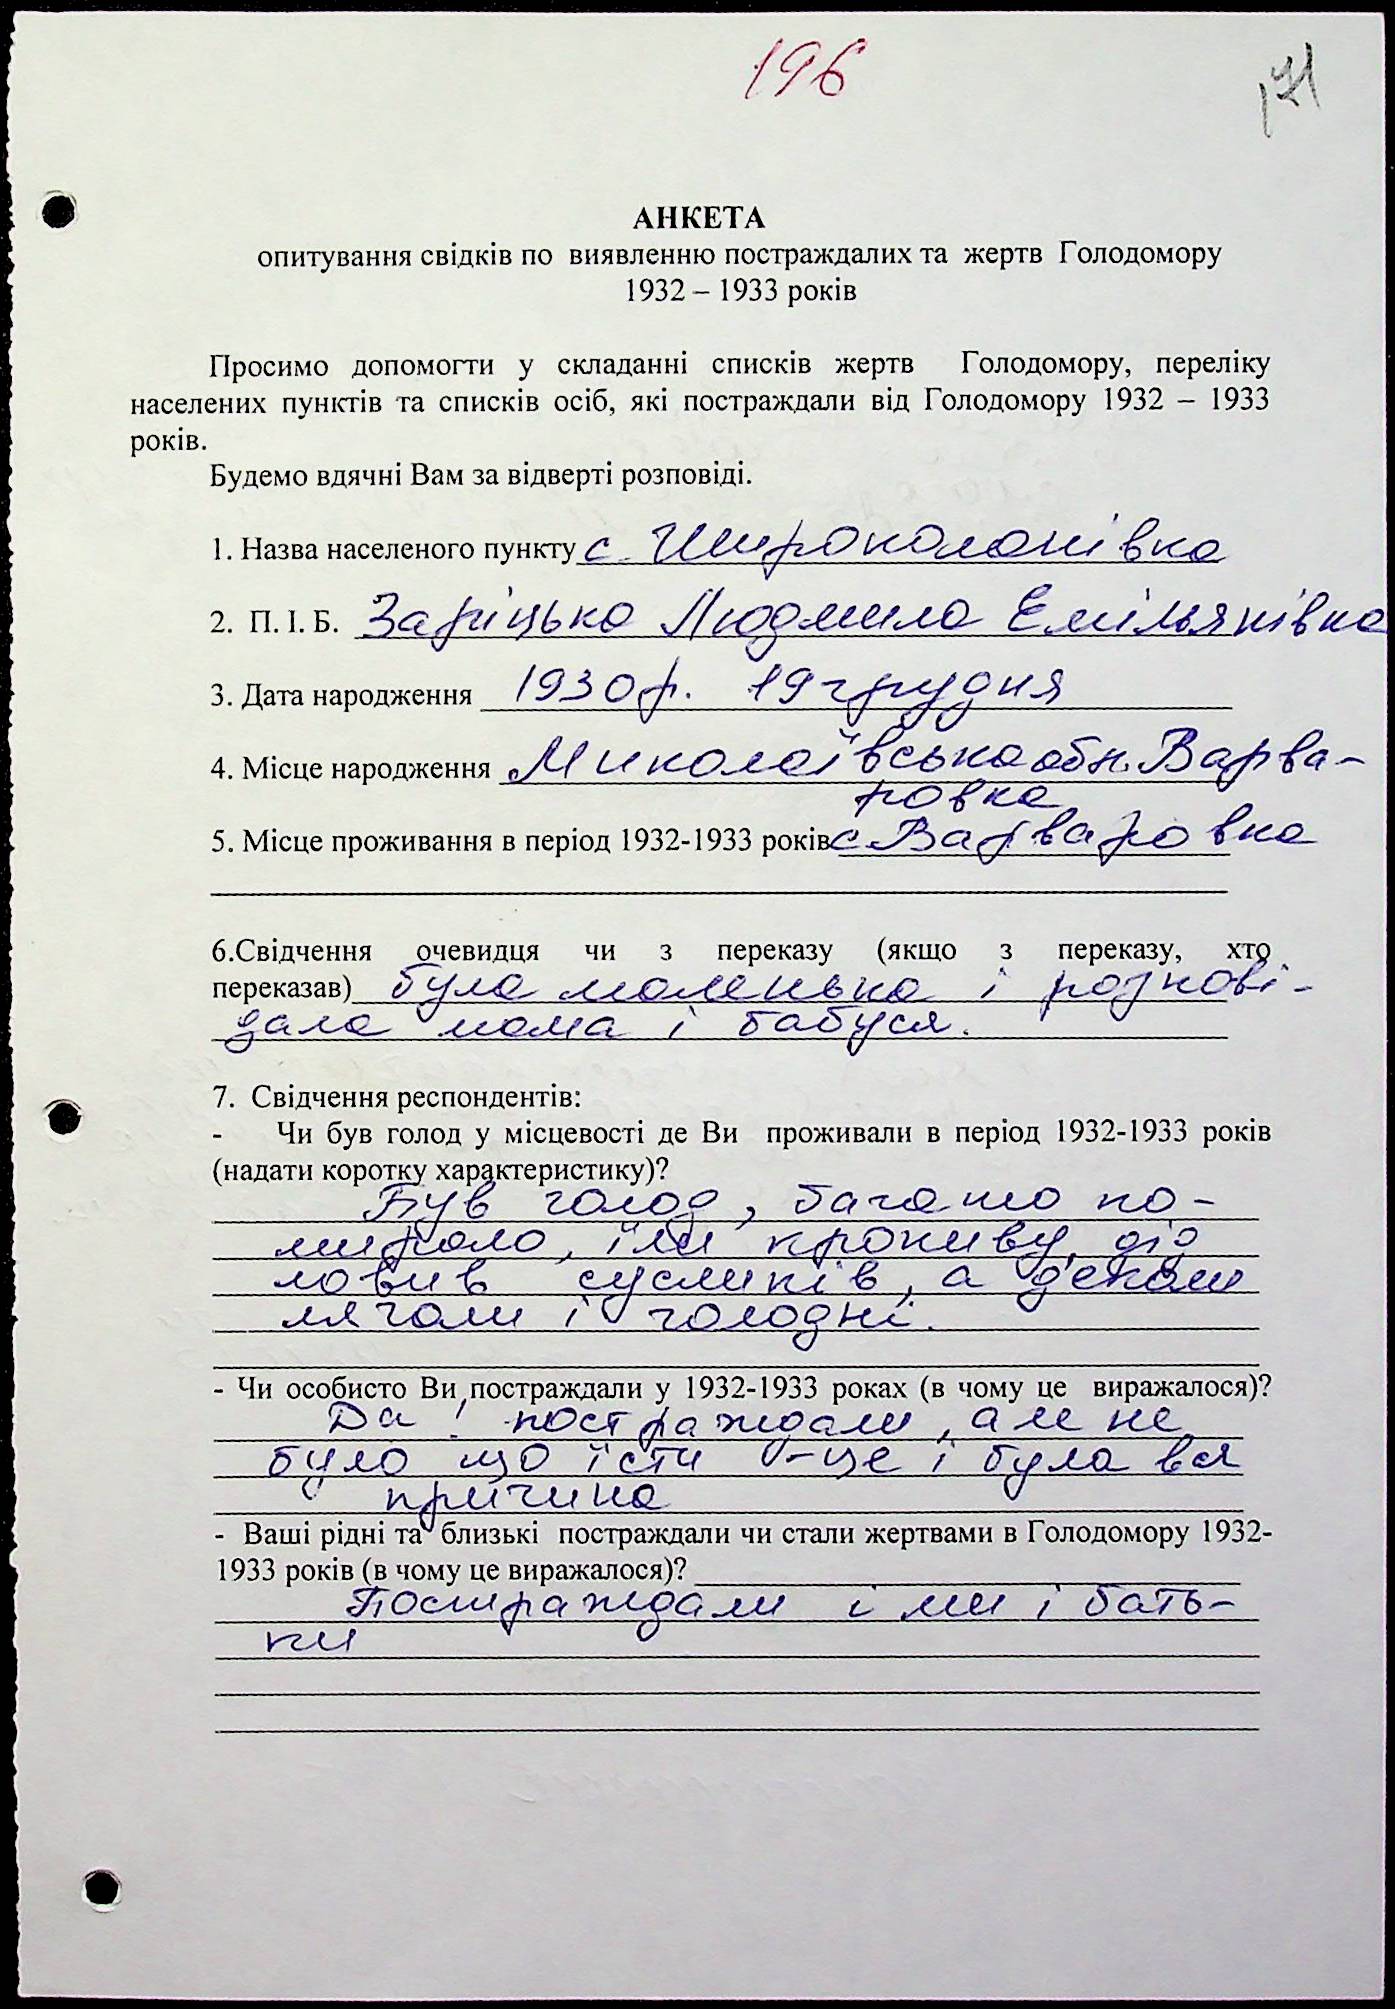 196
171
АНКЕТА
опитування свідків по виявленню постраждалих та жертв Голодомору
1932 – 1933 років
Просимо допомогти у складанні списків жертв Голодомору, переліку
населених пунктів та списків осіб, які постраждали від Голодомору 1932 – 1933
років.
Будемо вдячні Вам за відверті розповіді.
1. Назва населеного пункту с. Широколанівка
2. П. І. Б. Заріцька Людмила Емільянівна
3. Дата народження 1930 р. 19 грудня
4. Місце народження Миколаївська обл. Варва-
ровка
5. Місце проживання в період 1932-1933 років с Варваровка
6.Свідчення очевидця чи з переказу (якщо з переказу, хто
переказав) була маленька і розпові-
дала мама і бабуся.
7. Свідчення респондентів:
- Чи був голод у місцевості де Ви проживали в період 1932-1933 років
(надати коротку характеристику)?
Був голод, багато по-
мирало, їли кропиву, дід
ловив сусликів, а деколи
лягали і голодні.
- Чи особисто Ви постраждали у 1932-1933 роках (в чому це виражалося)?
Да! постраждали, але не
було що їсти – це і була вся
причина
- Ваші рідні та близькі постраждали чи стали жертвами в Голодомору 1932-
1933 років (в чому це виражалося)?
Постраждали і ми і бать-
ки